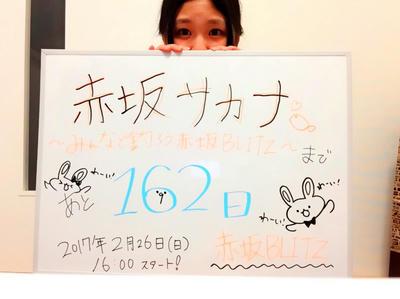 赤坂サカナ
〜みんなと釣ろう赤坂BLITZ〜
まで
わーい!
あと
162日
わーい!
わーい!
2017年2月26日(日)
16:00 スタート!
赤坂BLITZ